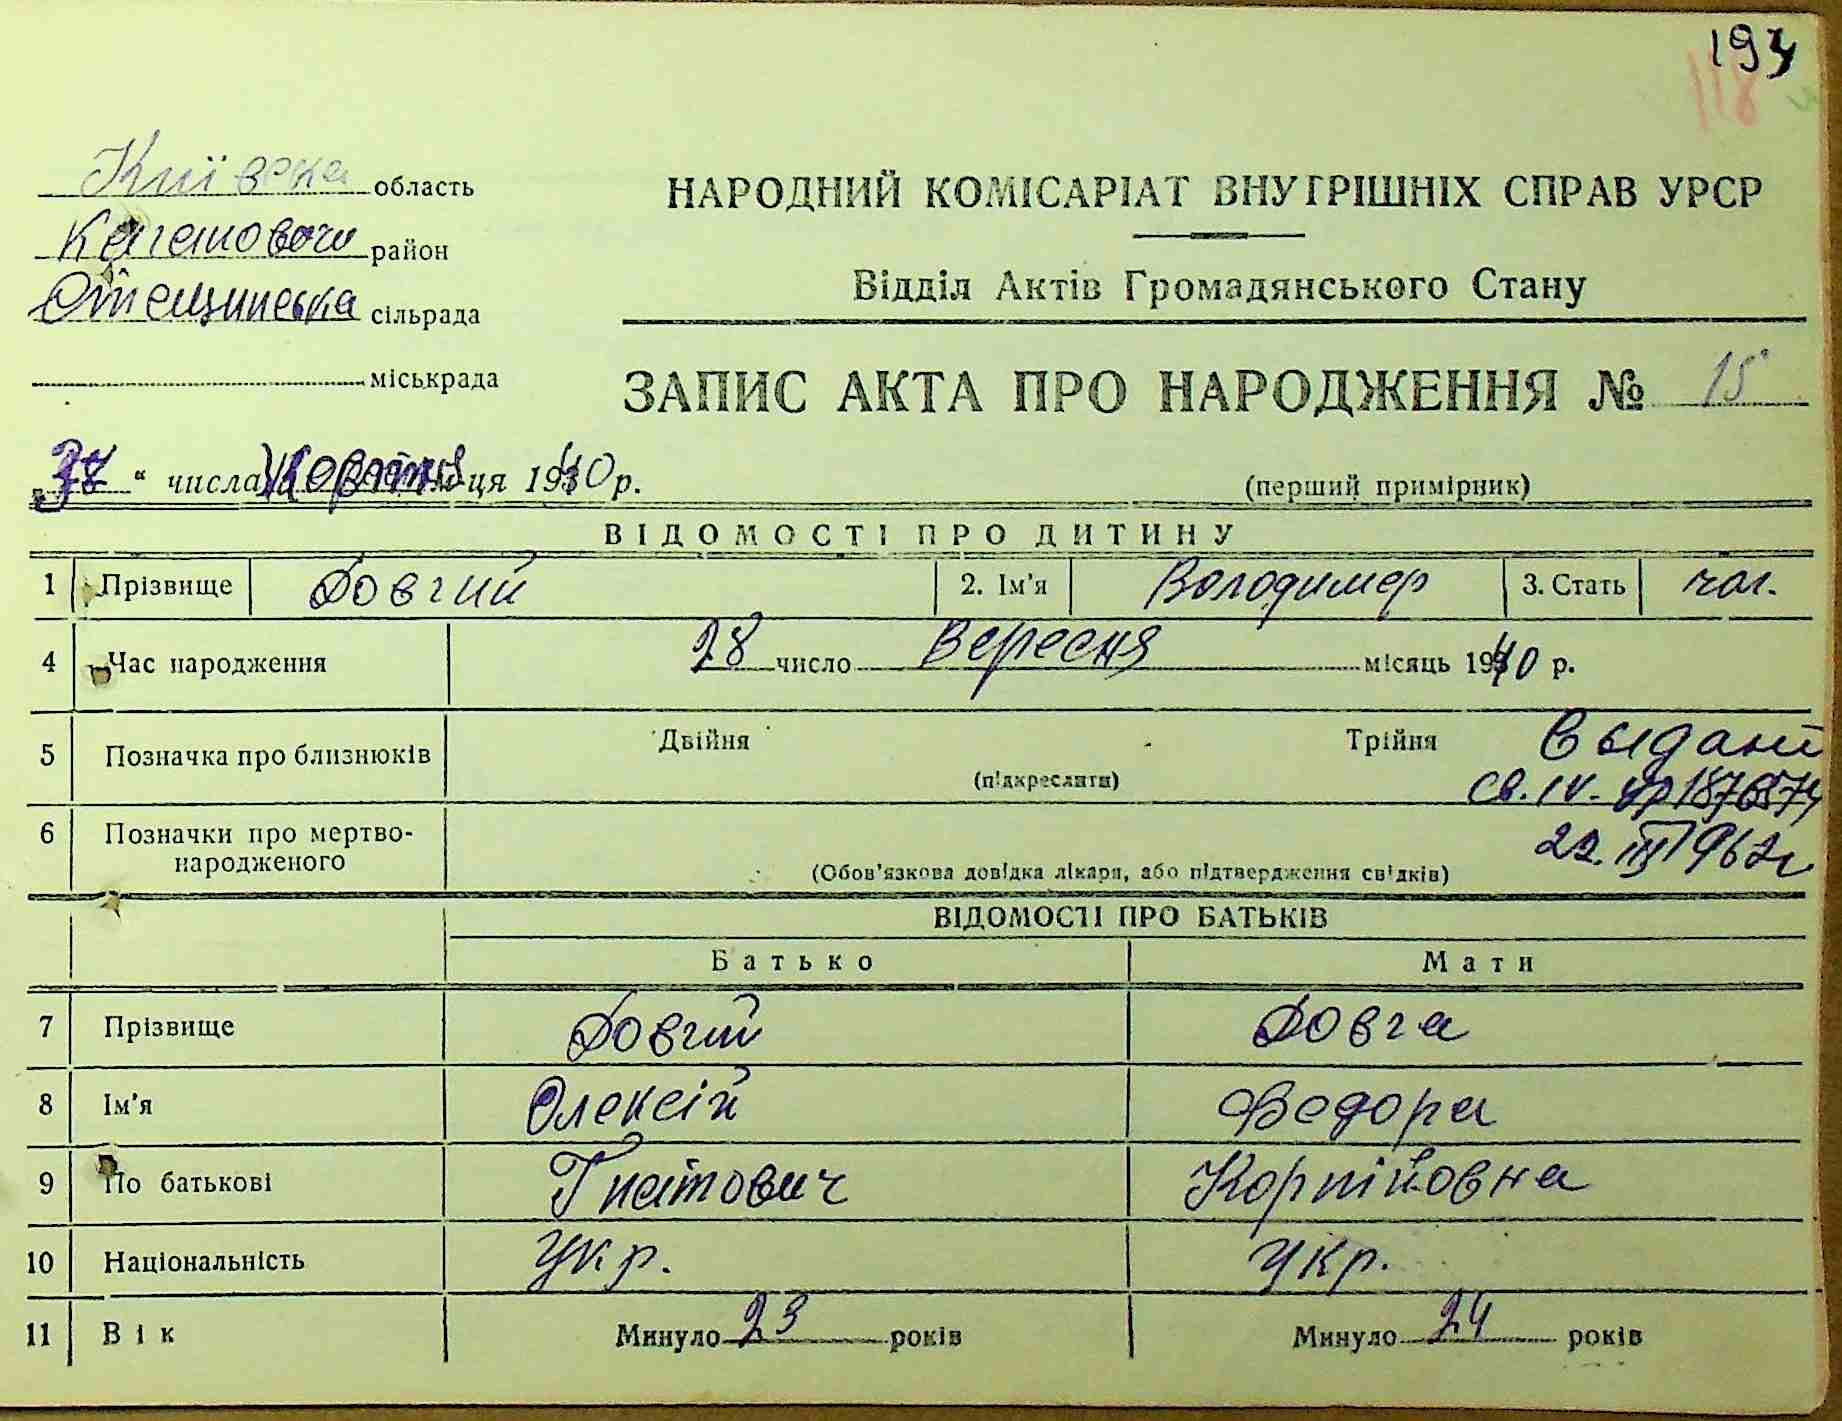 193
118
Київска область
НАРОДНИЙ КОМІСАРІАТ ВНУТРІШНІХ СПРАВ УРСР
Кагановочи район
Відділ Актів Громадянського Стану
сільрада
міськрада
ЗАПИС АКТА ПРО НАРОДЖЕННЯ № 15
“ числа Жовтня ця 1940 р.
(перший примірник)
ВІДОМОСТІ ПРО ДИТИНУ
1 Прізвище Довгий 2. Ім'я Володимер 3. Стать чол.
4 Час народження 28 число Вересня місяць 1940 р.
5 Позначка про близнюків Двійня Трійня
(підкреслити)
Выдано
св. IV-
22.III 1962г
6 Позначки про мертво-
народженого
(Обов'язкова довідка лікаря, або підтвердження свідків)
ВІДОМОСТІ ПРО БАТЬКІВ
Батько Мати
7 Прізвище Довгий Довга
8 Ім'я Олексій Федора
9 По батькові Гнатович Корнійовна
10 Національність Укр. Укр.
11 Вік Минуло 23 років Минуло 24 років